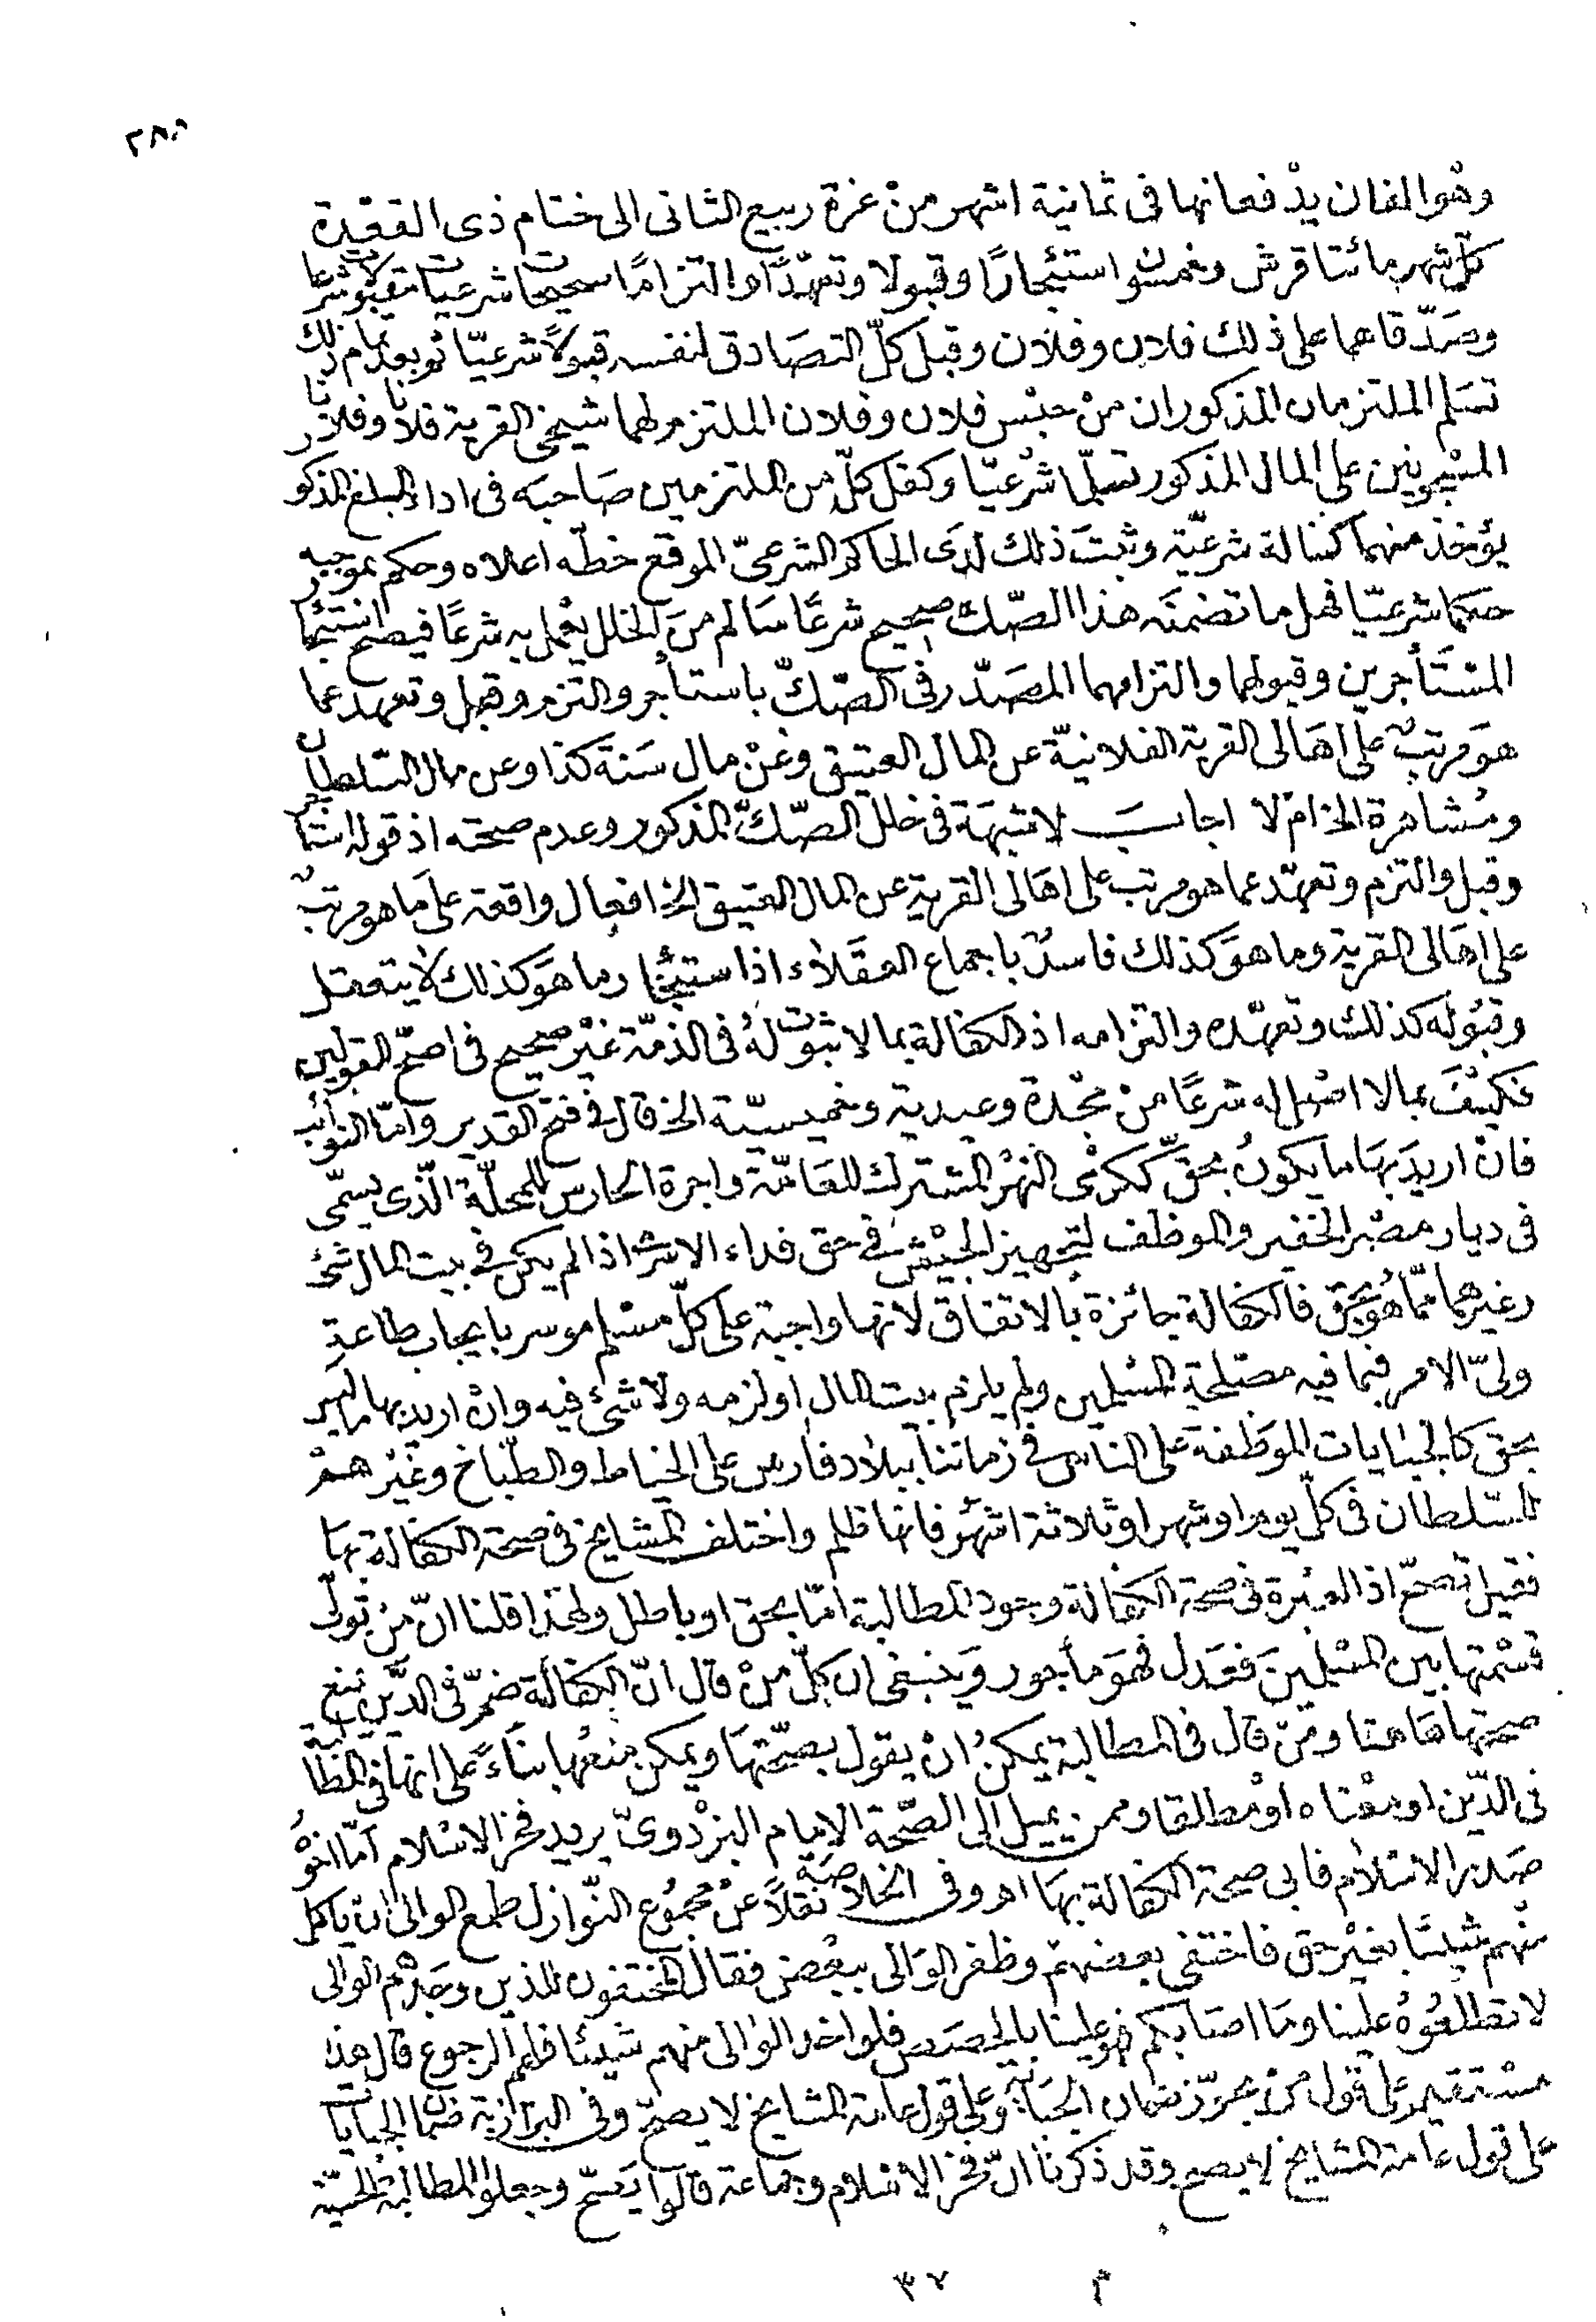 ٢٨٥
وهو الفان يدفعانها فى ثمانية اشهر من غرة ربيع الثانى الى ختام ذى القعدة
كل شهر مائتا قرش وخمسون استئجارًا وقبولا وتعهّدًا والتزامًا صحيحات شرعيات مقبولات شرعا
وصدّقاهما على ذلك فلان وفلان وقبل كلّ التصادق لنفسه قبولًا شرعيّا ثم بعد تمام ذلك
تسلم الملتزمان المذكوران من حبس فلان وفلان الملتزم لهما شيخى القرية فلانا وفلانا
المسجونين على المال المذكور تسلّما شرعيّا وكفل كلّ من الملتزمين صاحبه فى اداء المبلغ المذكور
يؤخذ منهما كفالة شرعيّة وثبت ذلك لدى الحاكم الشرعىّ الموقع خطّه اعلاه وحكم بموجبه
حكما شرعيّا فهل ما تضمنه هذا الصّكّ صحيح شرعًا سالم من الخلل يعمل به شرعًا فيصح استئجار
المستأجرين وقبولهما والتزامهما المصدّر فى الصّكّ باستأجر والتزم وقبل وتعهد عما
هو مرتبٌ على اهالى القرية الفلانيّة عن المال العتيق وعن مال سنة كذا وعن مال السّلطان
ومشاهرة الخ ام لا اجاب لا شبهة فى خلل الصّكّ المذكور وعدم صحته اذ قوله استأجر
وقبل والتزم وتعهّد عما هو مرتب على اهالى القرية عن المال العتيق الخ افعال واقعة على ما هو مرتبٌ
على اهالى القرية وما هو كذلك فاسدٌ باجماع العقلاء اذ استئجار ما هو كذلك لا يتعقل
وقبوله كذلك وتعهّده والتزامه اذ الكفالة بما لا ثبوت له فى الذمّة غير صحيح فى اصحّ القولين
فكيف بما لا اصل له شرعًا من وعيدية وخميسيّة الخ قال فى فتح القدير وامّا النوائب
فان اريد بها ما يكون بحقّ ككرى النهر المشترك للعامّة واجرة الحارس للمحلّة الّذى يسمّى
فى ديار مصر الخفير والموظف لتجهيز الجيش فى حق فداء الاسرى اذا لم يكن فى بيت المال شئ
وغيرهما ممّا هو بحق فالكفالة جائزة بالاتفاق لانها واجبة على كلّ مسلم موسر بايجاب طاعة
ولىّ الامر فيما فيه مصلحة المسلمين ولم يلزم بيت المال او لزمه ولا شئ فيه وان اريد بها ما ليس
بحق كالجبايات الموظفة على الناس فى زماننا ببلاد فارس على الخياط والطبّاخ وغيرهم
للسّلطان فى كلّ يوم او شهر او ثلاثة اشهر فانها ظلم واختلف المشايخ فى صحة الكفالة بها
فقيل تصحّ اذ العبرة فى صحة الكفالة وجود المطالبة امّا بحق او باطل ولهذا قلنا انّ من تولّى
قسمتها بين المسلمين فعدل فهو مأجور وينبغى ان كلّ من قال انّ الكفالة ضمّ فى الدّين يمنع
صحتها هاهنا ومن قال فى المطالبة يمكن ان يقول بصحّتها ويمكن منعها بناءً على انها فى المطالبة
فى الدّين او معناه او مطلقا وممن يميل الى الصّحة الامام البزدوىّ يريد فخر الاسلام امّا اخوه
صدر الاسلام فابى صحة الكفالة بها اهـ وفى الخلاصة نقلًا عن مجموع النّوازل طمع الوالى ان ياكل
منهم شيئًا بغير حق فاختفى بعضهم وظفر الوالى ببعض فقال المختفون للذين وجدهم الوالى
لا تطلعوه علينا وما اصابكم فهو علينا بالحصص فلو اخذ الوالى منهم شيئا فلهم الرجوع قال هذا
مستقيم على قول من يجوّز ضمان الجباية وعلى قول عامة المشايخ لا يصحّ وفى البزازية ضمان الجبايات
على قول عامة المشايخ لا يصح وقد ذكرنا انّ فخر الاسلام وجماعة قالوا يصحّ وجعلوا المطالبة الحسّيّة
م ٣٧